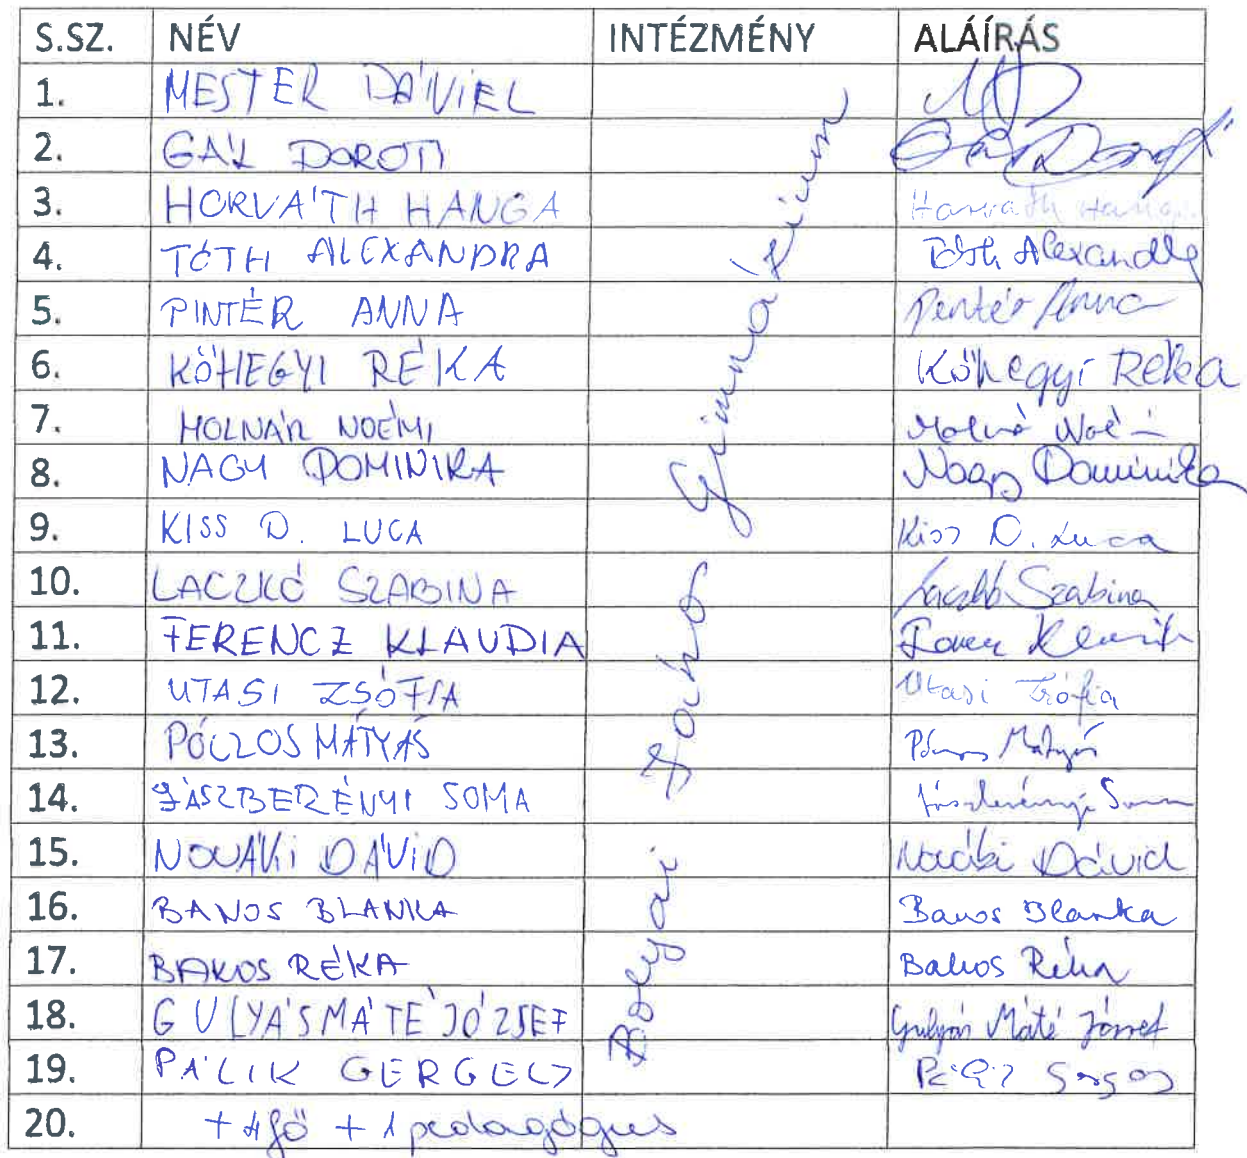 S.SZ. NÉV INTÉZMÉNY ALÁÍRÁS
1. MESTER DÁNIEL
2. GÁL DOROTI Gál Doroti
3. HORVÁTH HANGA Horváth Hanga
4. TÓTH ALEXANDRA Tóth Alexandra
5. PINTÉR ANNA Pintér Anna
6. KŐHEGYI RÉKA Kőhegyi Réka
7. MOLNÁR NOÉMI Molnár Noémi
8. NAGY DOMINIKA Nagy Dominika
9. KISS D. LUCA Kiss D. Luca
10. LACZKÓ SZABINA Laczkó Szabina
11. FERENCZ KLAUDIA Ferencz Klaudia
12. UTASI ZSÓFIA Utasi Zsófia
13. PÓCZOS MÁTYÁS Póczos Mátyás
14. JÁSZBERÉNYI SOMA Jászberényi Soma
15. NOVÁKI DÁVID Nováki Dávid
16. BANOS BLANKA Banos Blanka
17. BAKOS RÉKA Bakos Réka
18. GULYÁS MÁTÉ JÓZSEF Gulyás Máté József
19. PÁLIK GERGELY
20. + 4 fő + 1 pedagógus
Bolyai János Gimnázium